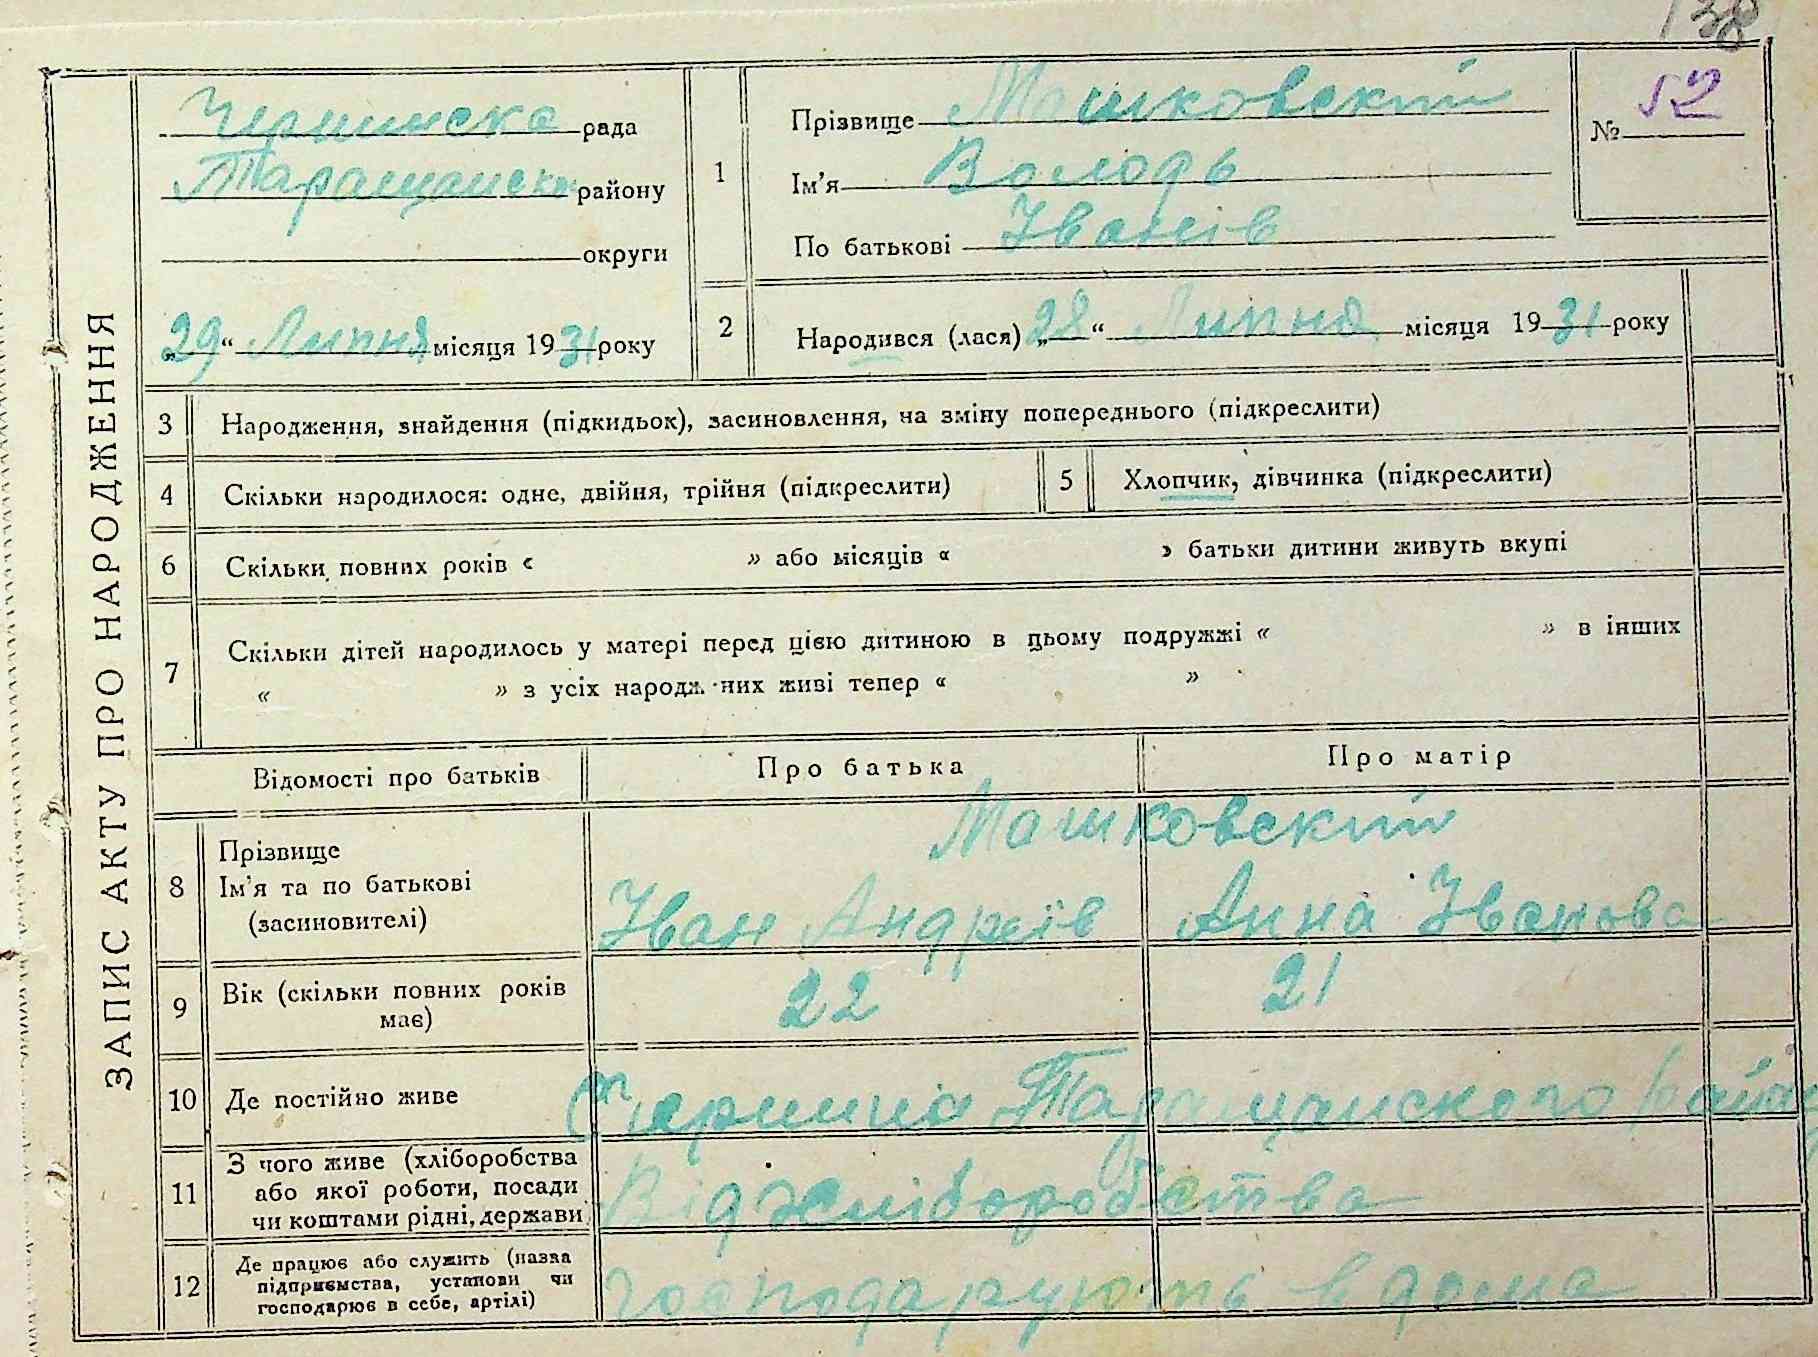 138
ЗАПИС АКТУ ПРО НАРОДЖЕННЯ
Черкинска рада
Таращанск району
округи
„29“ Липня місяця 1931 року
1
Прізвище Машковский
Ім'я Володь
По батькові Іванів
№ 52
2 Народився (лася) „28“ Липня місяця 1931 року
3 Народження, знайдення (підкидьок), засиновлення, на зміну попереднього (підкреслити)
4 Скільки народилося: одне, двійня, трійня (підкреслити)
5 Хлопчик, дівчинка (підкреслити)
6 Скільки повних років « » або місяців « » батьки дитини живуть вкупі
7 Скільки дітей народилось у матері перед цією дитиною в цьому подружжі « » в інших
« » з усіх народж них живі тепер « »
Відомості про батьків Про батька Про матір
Машковский
8 Прізвище
Ім'я та по батькові
(засиновителі)
Іван Андреїв Анна Іванова
9 Вік (скільки повних років
має)
22 21
10 Де постійно живе Таращанского рай
11 З чого живе (хліборобства
або якої роботи, посади
чи коштами рідні, держави
Від хліборобства
12 Де працює або служить (назва
підприємства, установи чи
господарює в себе, артілі)
Господарують в дома